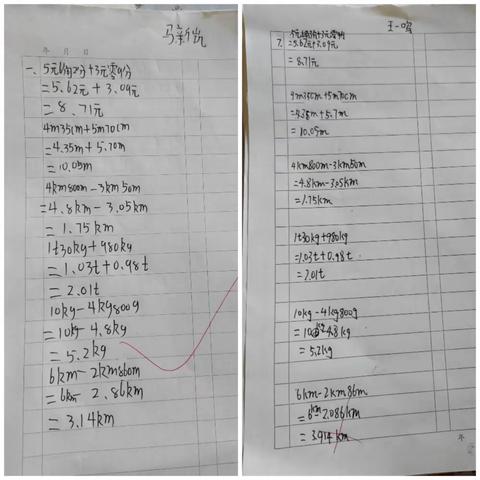 年 月 日
一、5元6角2分+3元零9分
=5.62元+3.09元
=8.71元
4m35cm+5m70cm
=4.35m+5.70m
=10.05m
4km800m-3km50m
=4.8km-3.05km
=1.75km
1t30kg+980kg
=1.03t+0.98t
=2.01t
10kg-4kg800g
=10kg-4.8kg
=5.2kg
6km-2km860m
=6km-2.86km
=3.14km
王一鸣
7.
=5.62元+3.09元
=8.71元
4m35cm+5m70cm
=4.35m+5.7m
=10.05m
4km800m-3km50m
=4.8km-3.05km
=1.75km
1t30kg+980kg
=1.03t+0.98t
=2.01t
10kg-4kg800g
=10kg-4.8kg
=5.2kg
6km-2km86m
=6km-2.086km
=3.914km
年